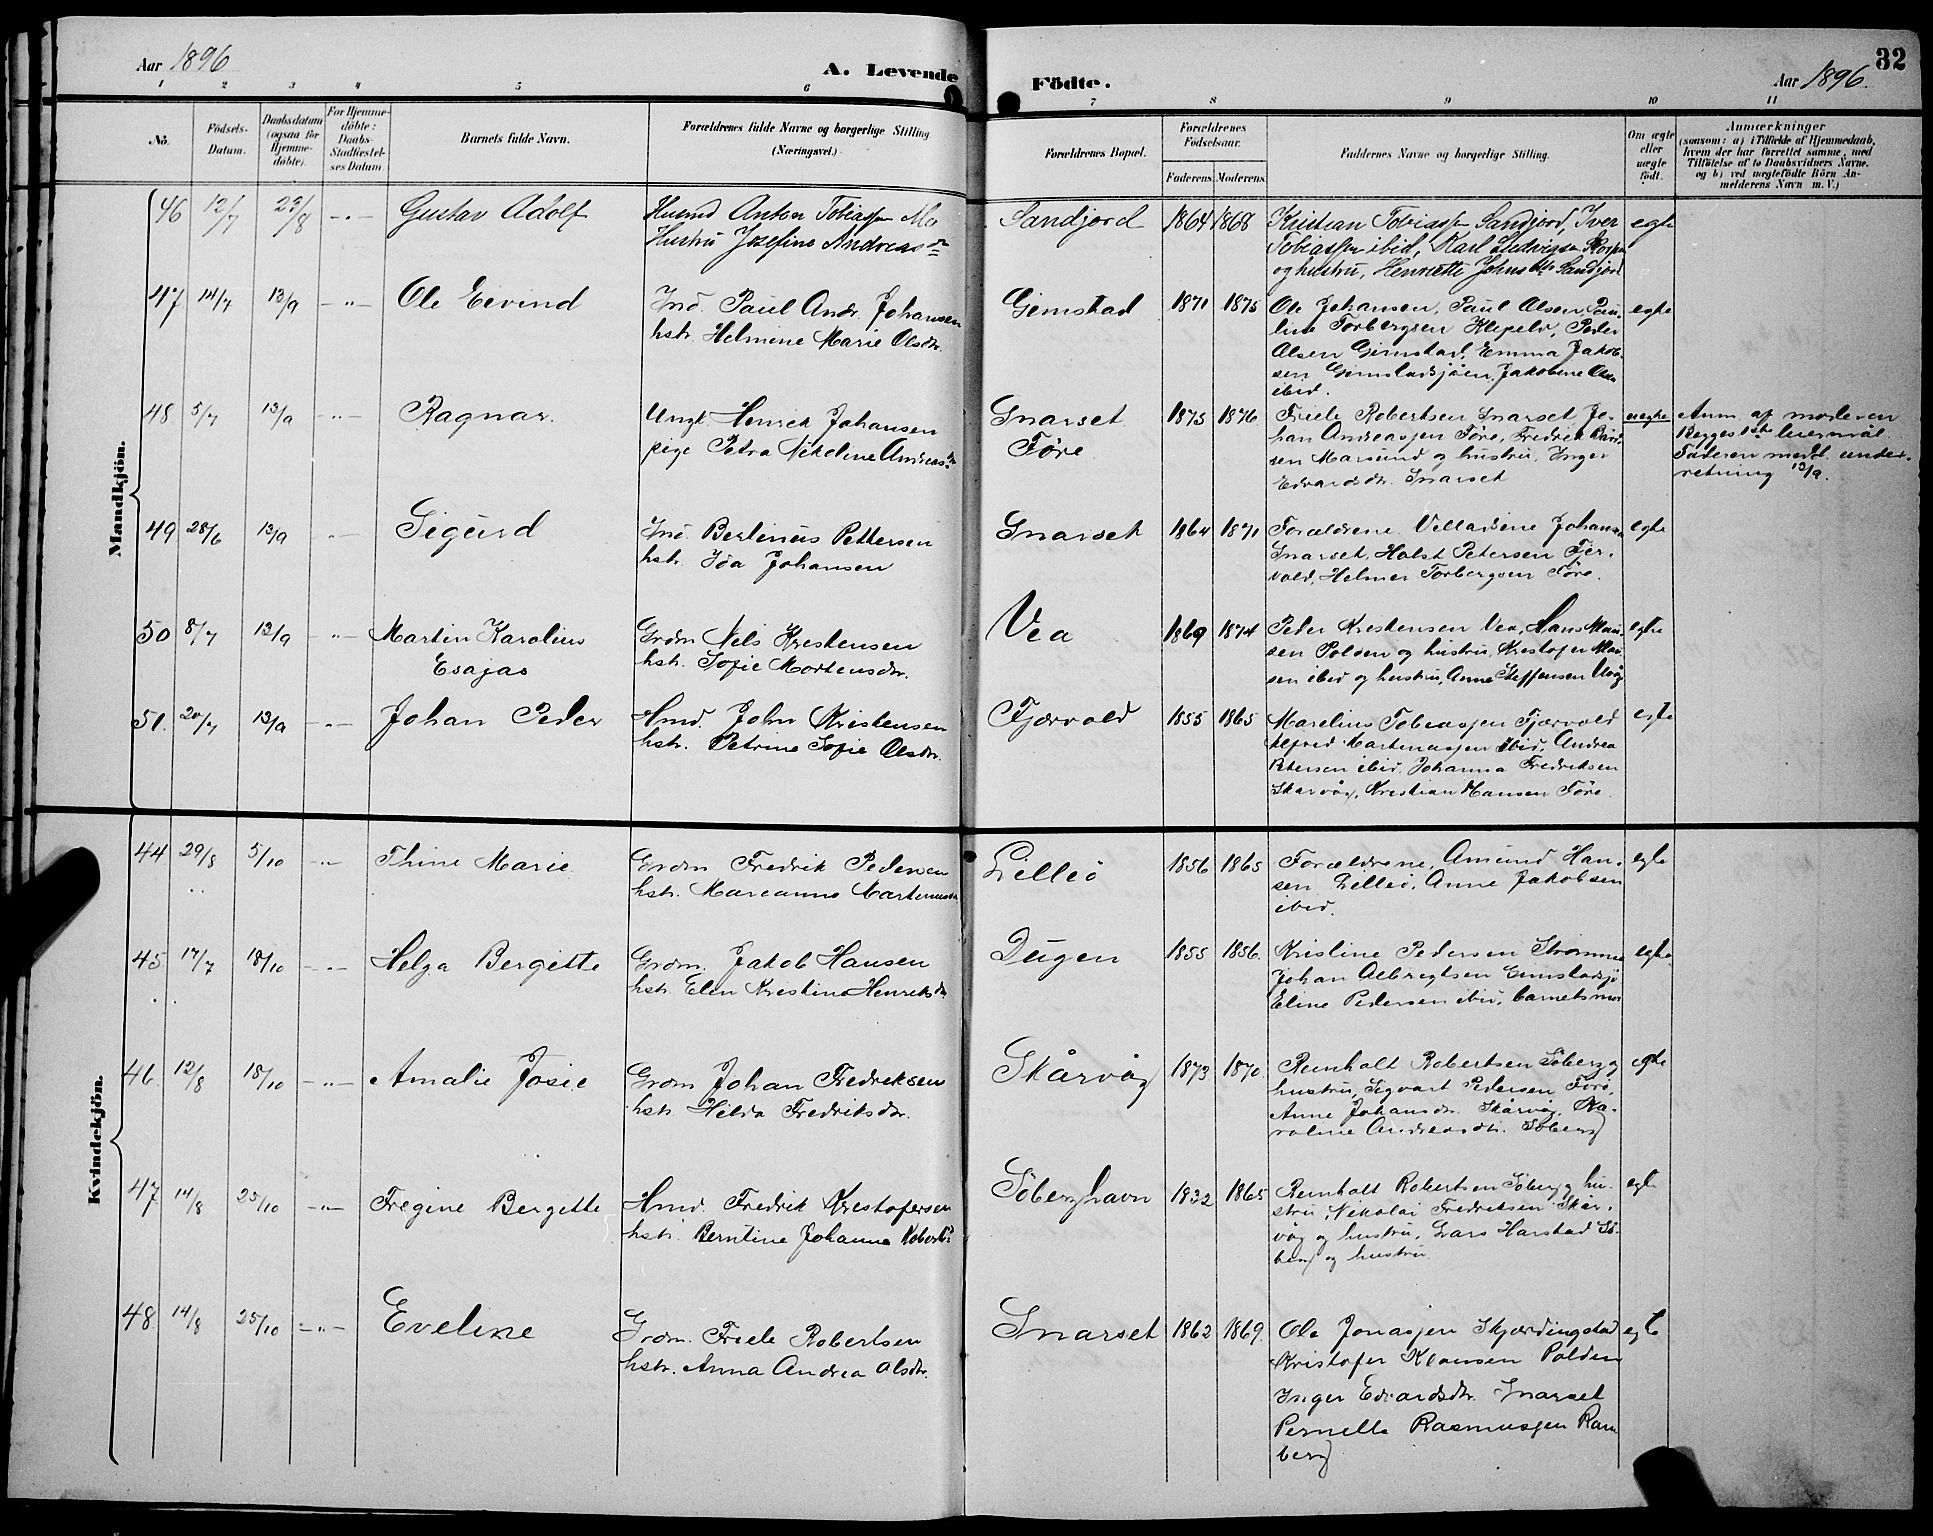 Aar 1896
A. Levende
Födte.
Aar 1896.
32
1 2 3 4 5 6 7 8 9 10 11
No.
Födsels-
Datum.
Daabsdatum
(ogsaa for
Hjemme-
döbte).
For Hjemme-
döbte:
Daabs-
Stadfæstel-
ses Datum
Barnets fulde Navn.
Forældrenes fulde Navne og borgerlige Stilling.
(Næringsvei.)
Forældrenes Bopæl.
Forældrenes
Födselsaar.
Faderens. Moderens.
Faddernes Navne og borgerlige Stilling.
Om ægte
eller
uægte
födt.
Anmærkninger
(saasom: a) i Tilfælde af Hjemmedaab,
hvem der har forrettet samme, med
Tilföielse af to Daabsvidners Navne.
og b) ved uægtefödte Börn An-
melderens Navn m. V.)
Mandkjön.
46 12/7 23/8 -„- Gustav Adolf
Husmd Anton Tobiassen
Hustru Josefine Andreasdr
Sandjord 1864 1868
Kristian Tobiassen Sandjord, Iver
Tobiassen ibid, Karl Ludvigsen
og hustru, Henriette Johnsdtr Sandjord
egte
47 14/7 13/9 -„- Ole Eivind
Ind. Paul Andr. Johansen
hstr. Helmine Marie Olsdr.
Gimstad 1871 1875
Ole Johansen, Paul Olsen, Pau-
line Torbergsen Klepeld, Peder
Olsen Gimstad, Emma Jakob-
sen Gimstadsjöen, Jakobine Olsen
ibid.
egte
48 5/7 13/9 -„- Ragnar.
Ungk. Henrik Johansen
pige Petra Nikoline Andreasdr
Snarset
Före
1875 1876
Friele Robertsen Snarset Jo-
han Andreassen Före, Fredrik
sen Marsund og hustru, Inger
Edvardsdr. Snarset
uegte
Anm. af moderen
Begges 1ste leiermål.
Faderen medd. under-
retning 13/9.
49 28/6 13/9 -„- Sigurd
Ind. Bertinus Pettersen
hstr. Ida Johansen
Snarset 1864 1871
Forældrene Johansen
Snarset, Holst Petersen Fjær-
vold, Helmer Torbergsen Före.
egte
50 8/7 13/9 -„- Martin Karolius
Esajas
Grdm Nils Kristensen
hstr. Sofie Mortensdr.
Vea 1869 1874
Peder Kristensen Vea, Hans
sen Polden og hustru, Kristofer
sen ibid og hustru, Anne Steffensen
egte
51. 20/7 13/9 -„- Johan Peder
Hmd. John Kristensen
hstr. Petrine Sofie Olsdr.
Fjærvold 1855 1865
Marelius Tobiassen Fjærvold
Alfred Martinassen ibid, Andrea
Petersen ibid, Johanna Fredriksen
Skarvåg, Kristian Hansen Före.
egte
Kvindekjön.
44 29/8 5/10 -„- Thine Marie
Grdm Fredrik Pedersen
hstr. Marianne Martinusdr
Lilleö 1856 1865
Forældrene, Amund Han-
sen Lilleö, Anne Jakobsen
ibid.
egte
45 17/7 18/10 -„- Helga Bergitte
Grdm. Jakob Hansen
hstr. Elen Kristine Henriksdr
Dugen 1855 1856.
Kristine Pedersen Strömme
Johan Albregtsen Gimstadsjö
Eline Pedersen ibid, barnets mor
egte.
46. 12/8 18/10 -„- Amalie Josie
Grdm Johan Fredriksen
hstr. Hilda Fredriksdr.
Skårvåg 1873 1870
Reinholt Robertsen Söberg og
hustru, Sigvart Pedersen Före,
Anne Johansdr. Skårvåg, Ka-
roline Andreasdr. Söberg
egte
47. 14/8 25/10 -„- Fregine Bergitte
Hmd. Fredrik Kristofersen
hstr. Berntine Johanna Robertsdr
Söberghavn 1832 1865
Reinholt Robertsen Söberg og hu-
stru, Nikolai Fredriksen Skår-
våg og hustru, Lars Harstad Sö-
berg og hustru.
egte
48 14/8 25/10 -„- Eveline
Grdm. Friele Robertsen
hstr. Anna Andrea Olsdtr.
Snarset 1862 1869.
Ole Jonassen Skjærdingstad
Kristofer Klausen Polden
Inger Edvardsdtr. Snarset
Pernelle Rasmussen Ram
berg
egte